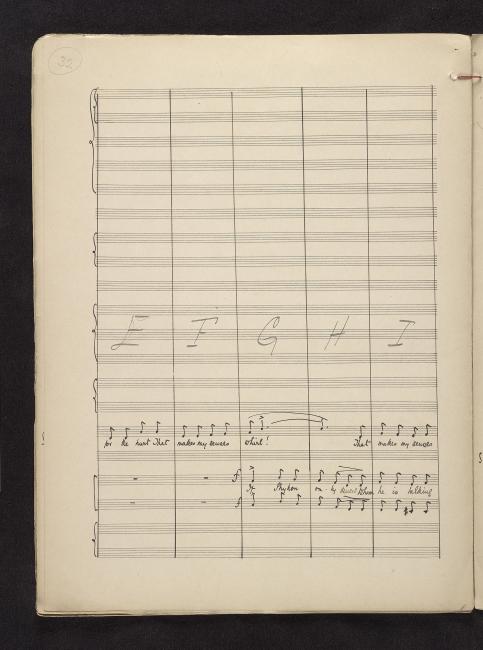 32
E F G H I
for the hurt that makes my senses whirl! That makes my senses
f If Phyllon on-ly knew whom he is talking
f